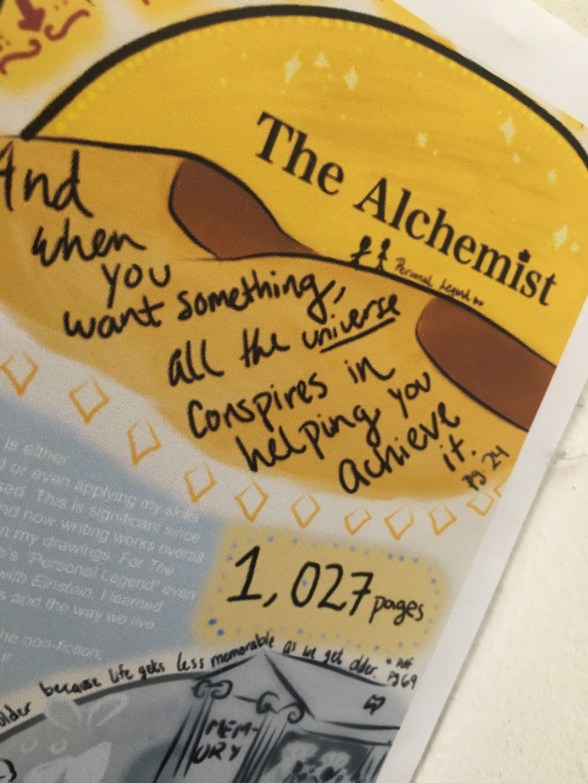 The Alchemist
Personal Legend
And
when
you
want something,
all the universe
conspires in
helping you
achieve
it.
pg. 24
is either
or even applying my skills
This is significant since
how writing works overall
my drawings. For The
"Personal Legend" even
with Einstein. I learned
and the way we live
the non-fiction,
1,027 pages
older because life gets less memorable as we get older.
pg 69
MEM-
ORY